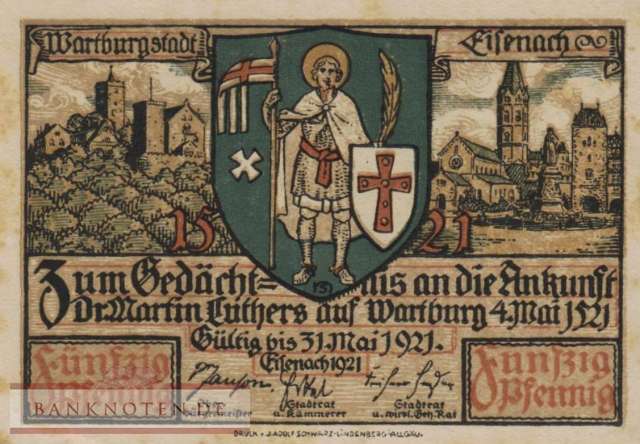 Wartburgstadt Eisenach
15 21
Zum Gedächt=nis an die Ankunft
Dr. Martin Luthers auf Wartburg 4. Mai 1521
Gültig bis 31. Mai 1921.
Eisenach 1921
Fünfzig Pfennig
Fünfzig Pfennig
Stadtrat u. Kämmerer
Stadtrat u. wirkl. Geh. Rat
BANKNOTEN.DE
DRUCK v. J. ADOLF SCHWARZ-LINDENBERG-ALLGÄU.